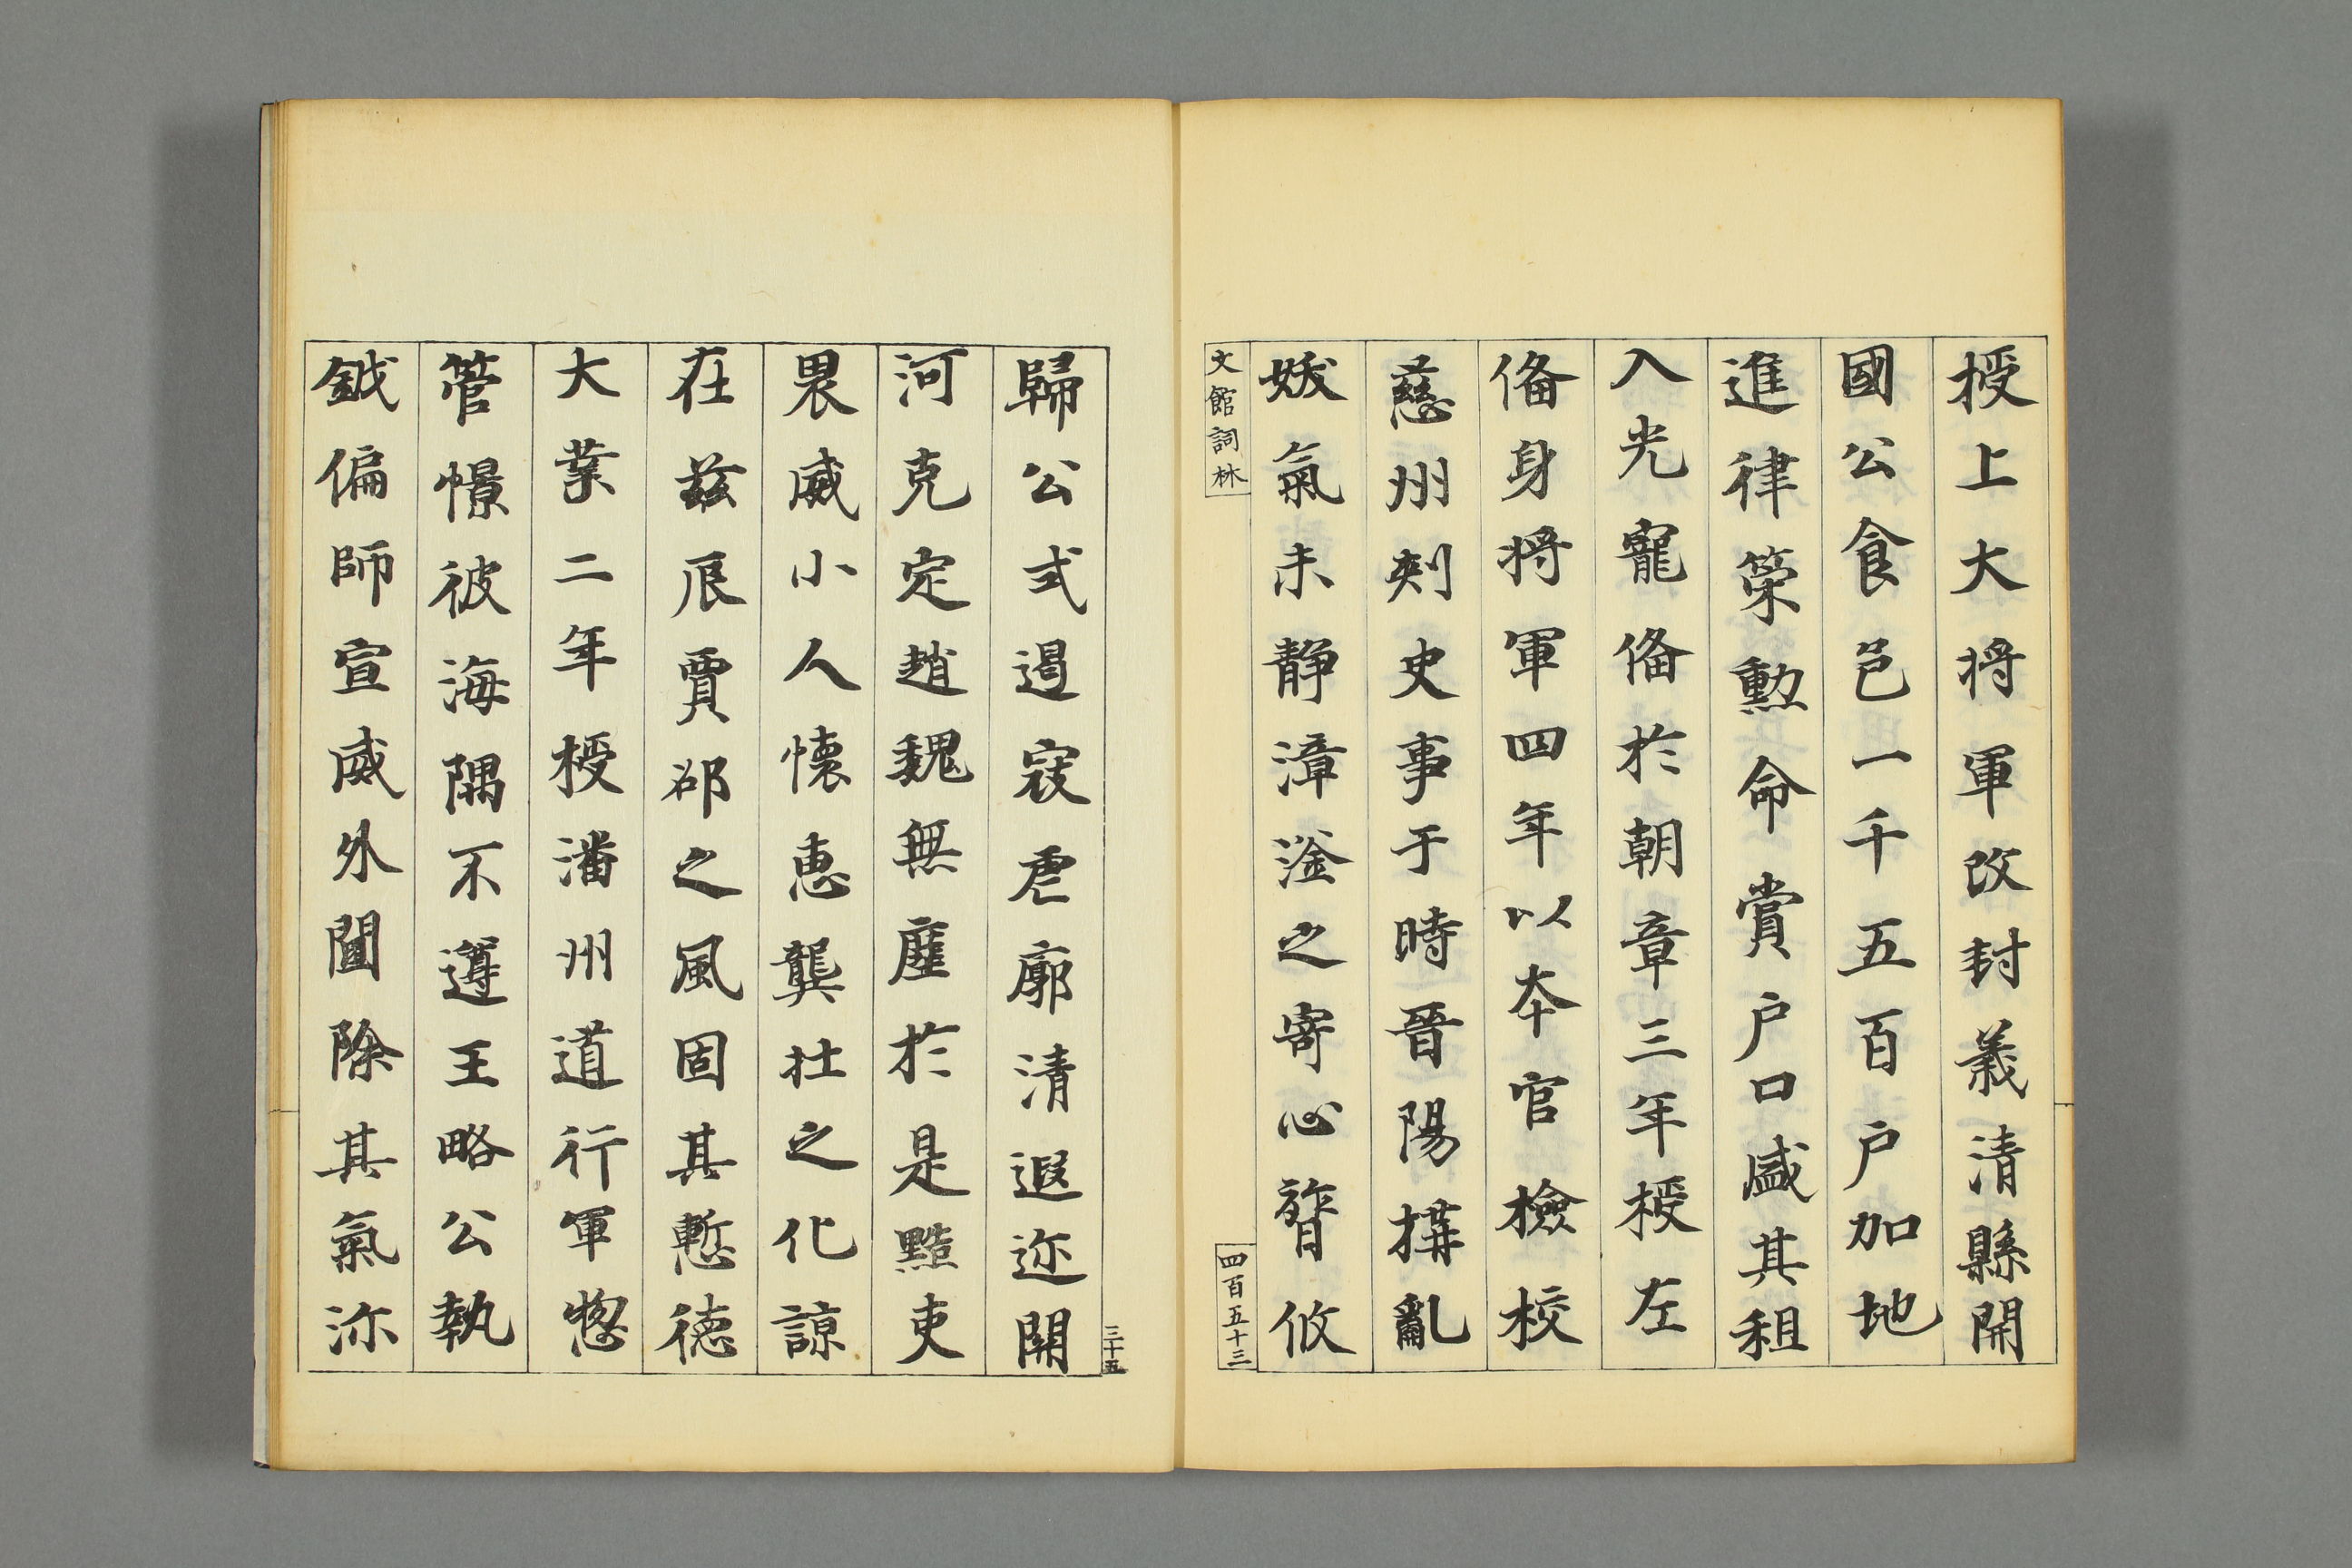 授上大将軍改封義清縣開
國公食邑一千五百戶加地
進律榮勳命賞戶口盛其租
入光寵俻於朝章三年授左
俻身将軍四年以本官檢校
慈州刾史事于時晉陽搆亂
妖氣未静漳滏之寄心膂攸
文館詞林
四百五十三
三十五
歸公式遏寇虐廓清遐迩開
河克定趙魏無塵於是黠吏
畏威小人懐惠龔杜之化諒
在兹辰賈郤之風固其慙徳
大業二年授潘州道行軍惣
管憬彼海隅不遵王略公執
鉞偏師宣威外閫除其氣沵